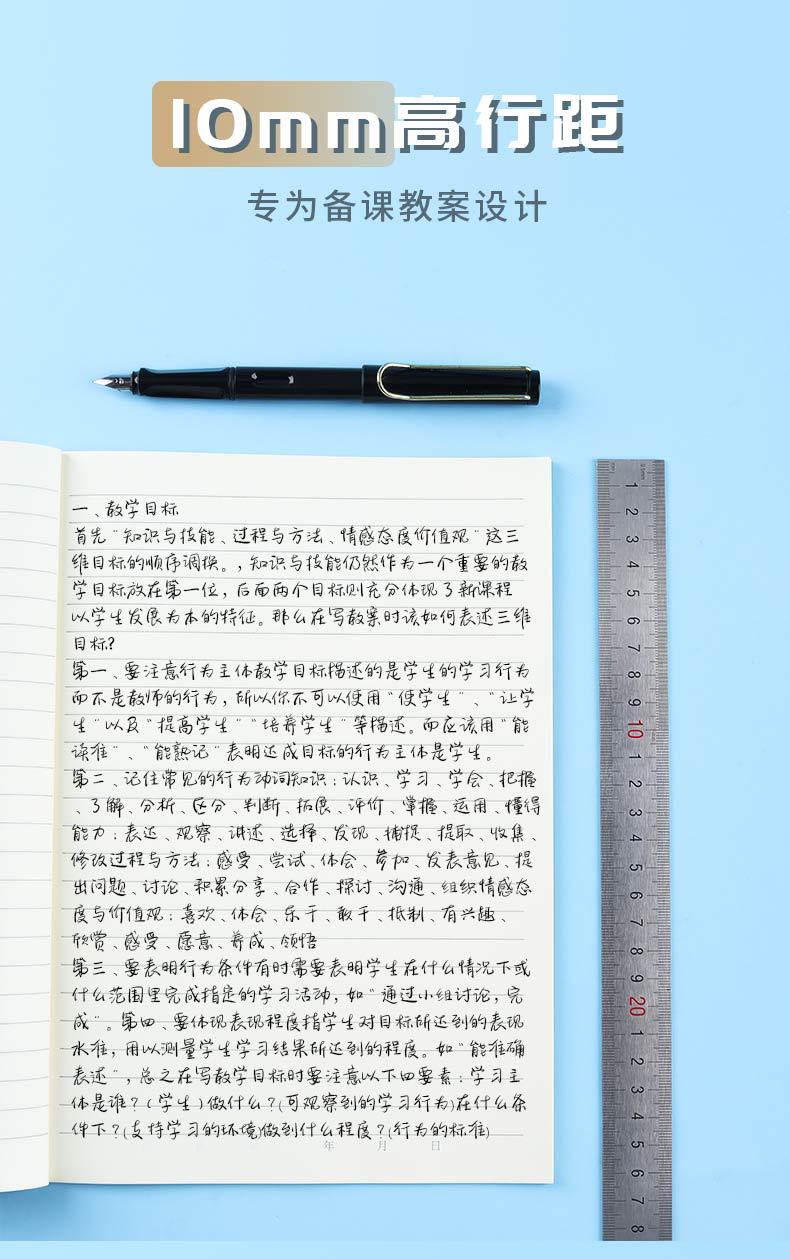 10mm高行距
专为备课教案设计
一、教学目标
首先"知识与技能、过程与方法、情感态度价值观"这三
维目标的顺序调换。,知识与技能仍然作为一个重要的教
学目标放在第一位，后面两个目标则充分体现了新课程
以学生发展为本的特征。那么在写教案时该如何表述三维
目标?
第一、要注意行为主体教学目标描述的是学生的学习行为
而不是教师的行为，所以你不可以使用"使学生"、"让学
生"以及"提高学生""培养学生"等描述。而应该用"能
读准"、"能熟记"表明达成目标的行为主体是学生。
第二、记住常见的行为动词知识：认识、学习、学会、把握
、了解、分析、区分、判断、拓展、评价、掌握、运用、懂得
能力：表达、观察、讲述、选择、发现、捕捉、提取、收集、
修改过程与方法：感受、尝试、体会、参加、发表意见、提
出问题、讨论、积累分享、合作、探讨、沟通、组织情感态
度与价值观：喜欢、体会、乐于、敢于、抵制、有兴趣、
欣赏、感受、愿意、养成、领悟
第三、要表明行为条件有时需要表明学生在什么情况下或
什么范围里完成指定的学习活动，如"通过小组讨论，完
成"。第四、要体现表现程度指学生对目标所达到的表现
水准，用以测量学生学习结果所达到的程度。如"能准确
表述"，总之在写教学目标时要注意以下四要素：学习主
体是谁？(学生)做什么？(可观察到的学习行为)在什么条
件下？(支持学习的环境)做到什么程度？(行为的标准)
年 月 日
1
2
3
4
5
6
7
8
9
10
1
2
3
4
5
6
7
8
9
20
1
2
3
4
5
6
7
8